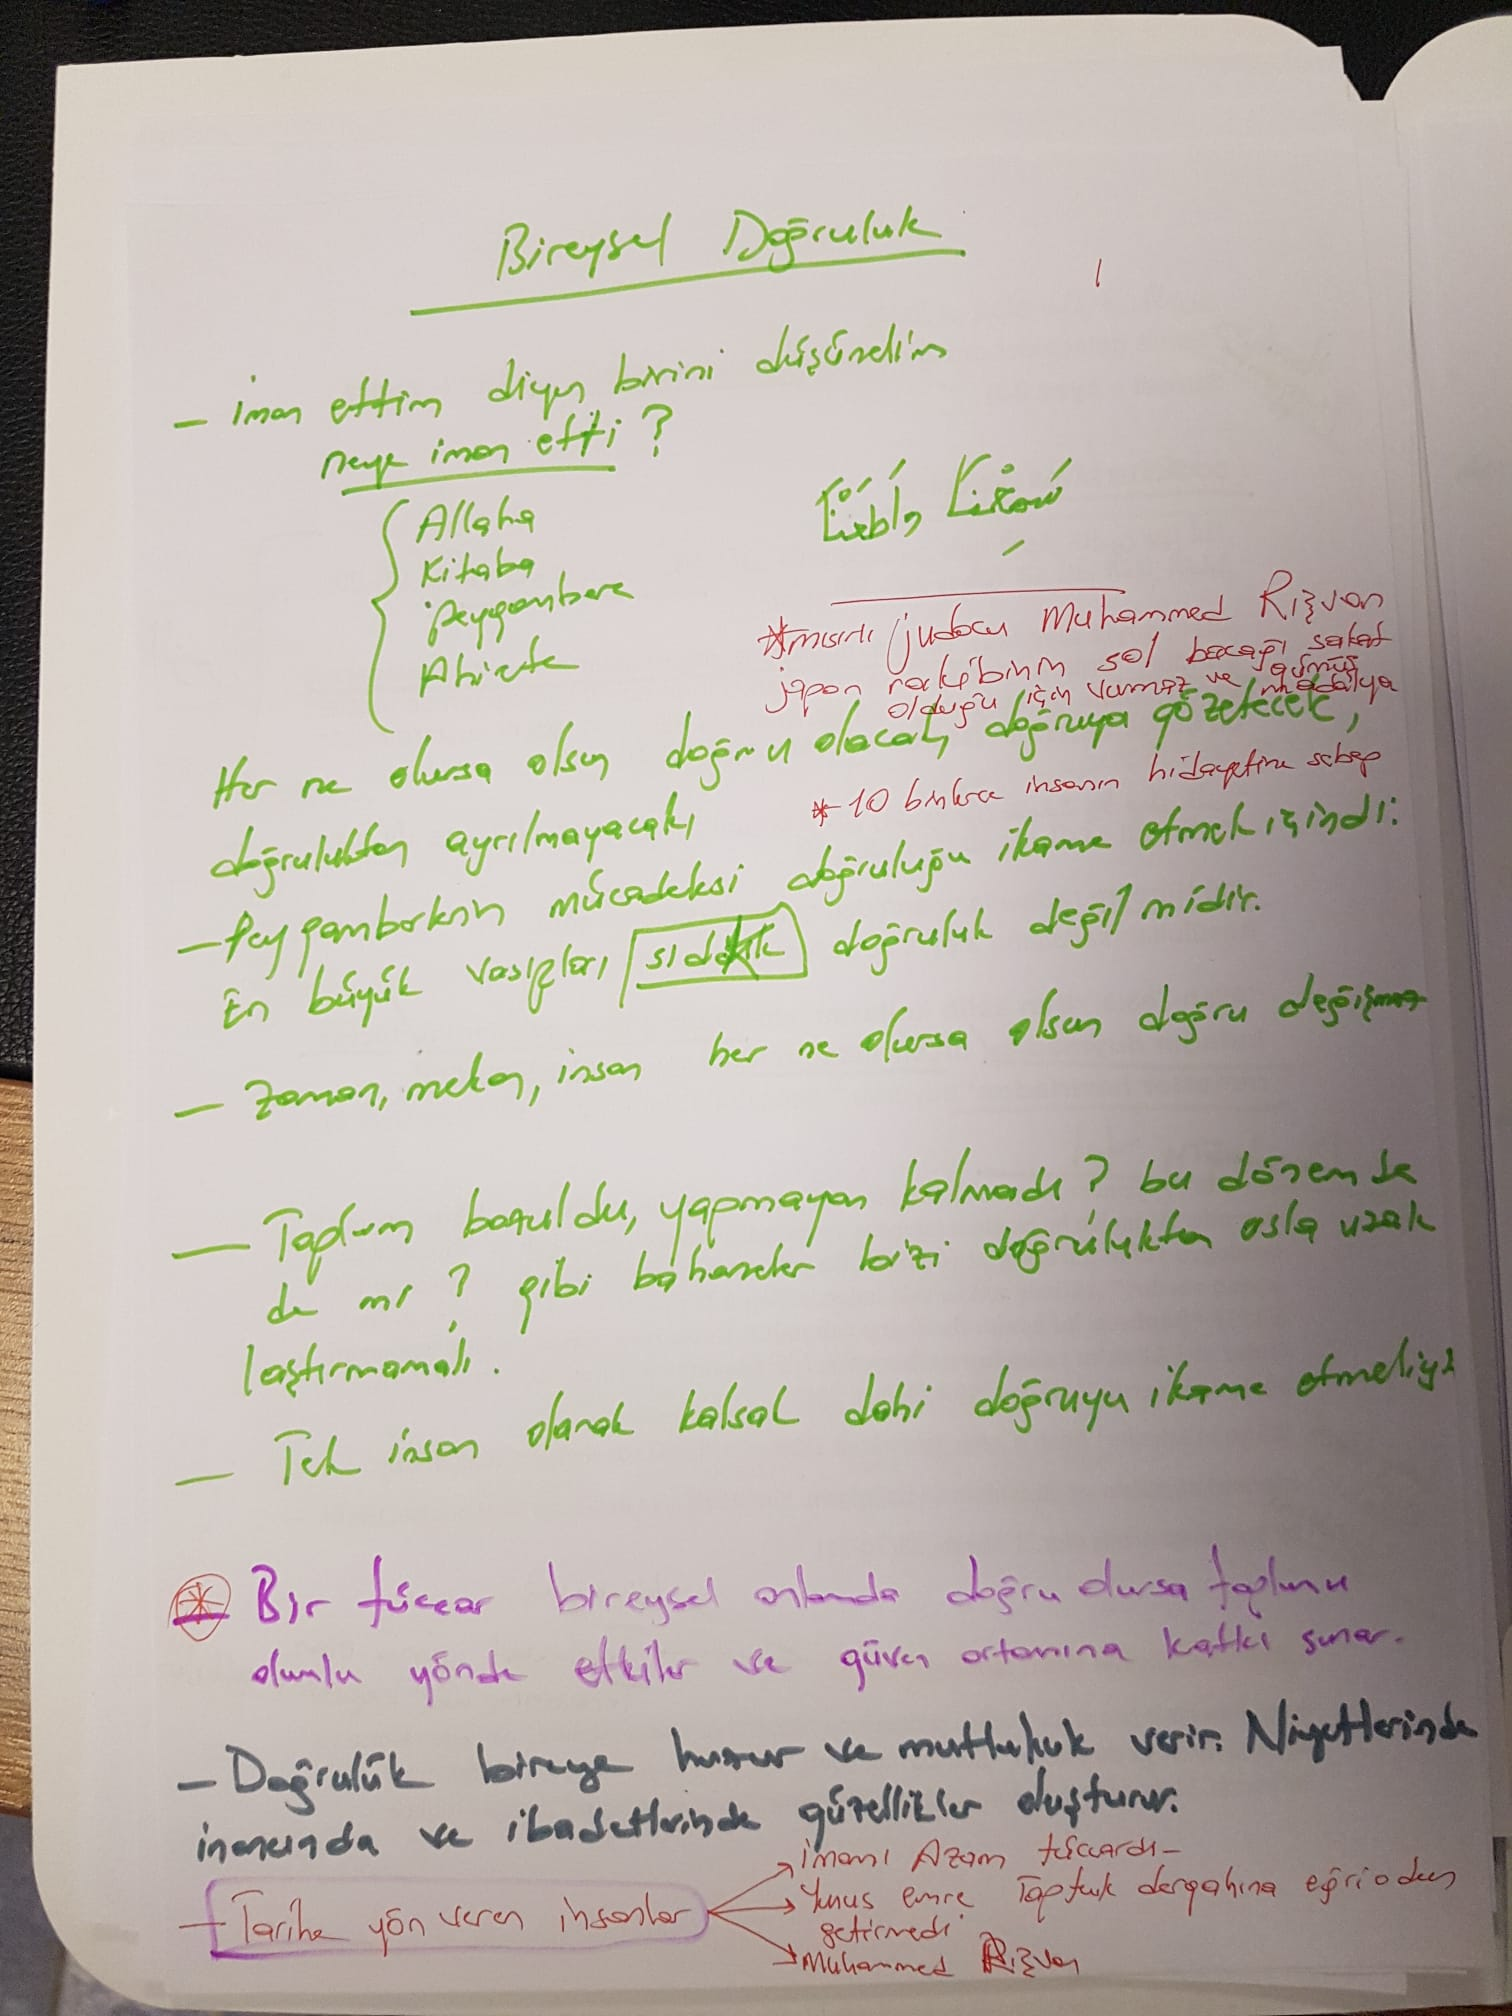 Bireysel Doğruluk
1
- iman ettim diyen birini düşünelim
neye iman etti?
Allaha
Kitaba
Peygambere
Ahirete
* mısırlı judocu Muhammed Rızvan
japon rakibinin sol bacağı sakat
olduğu için vurmaz ve gümüş madalya
Her ne olursa olsun doğru olacak, doğruyu gözetecek,
* 10 binlerce insanın hidayetine sebep
doğruluktan ayrılmayacak,
- Peygamberlerin mücadelesi doğruluğu ikame etmek içindi.
En büyük vasıfları sıddık doğruluk değil midir.
- Zaman, mekan, insan her ne olursa olsun doğru değişmez
- Toplum bozuldu, yapmayan kalmadı? bu dönemde
de mi? gibi bahaneler bizi doğruluktan asla uzak
laştırmamalı.
- Tek insan olarak kalsak dahi doğruyu ikame etmeliyiz
* Bir tüccar bireysel anlamda doğru olursa toplumu
olumlu yönde etkiler ve güven ortamına katkı sunar.
- Doğruluk bireye huzur ve mutluluk verir. Niyetlerinde
inancında ve ibadetlerinde güzellikler oluşturur.
imamı Azam tüccardı-
- Tarihe yön veren insanlar
Yunus emre Taptuk dergahına eğri odun
getirmedi
Muhammed Rızvan